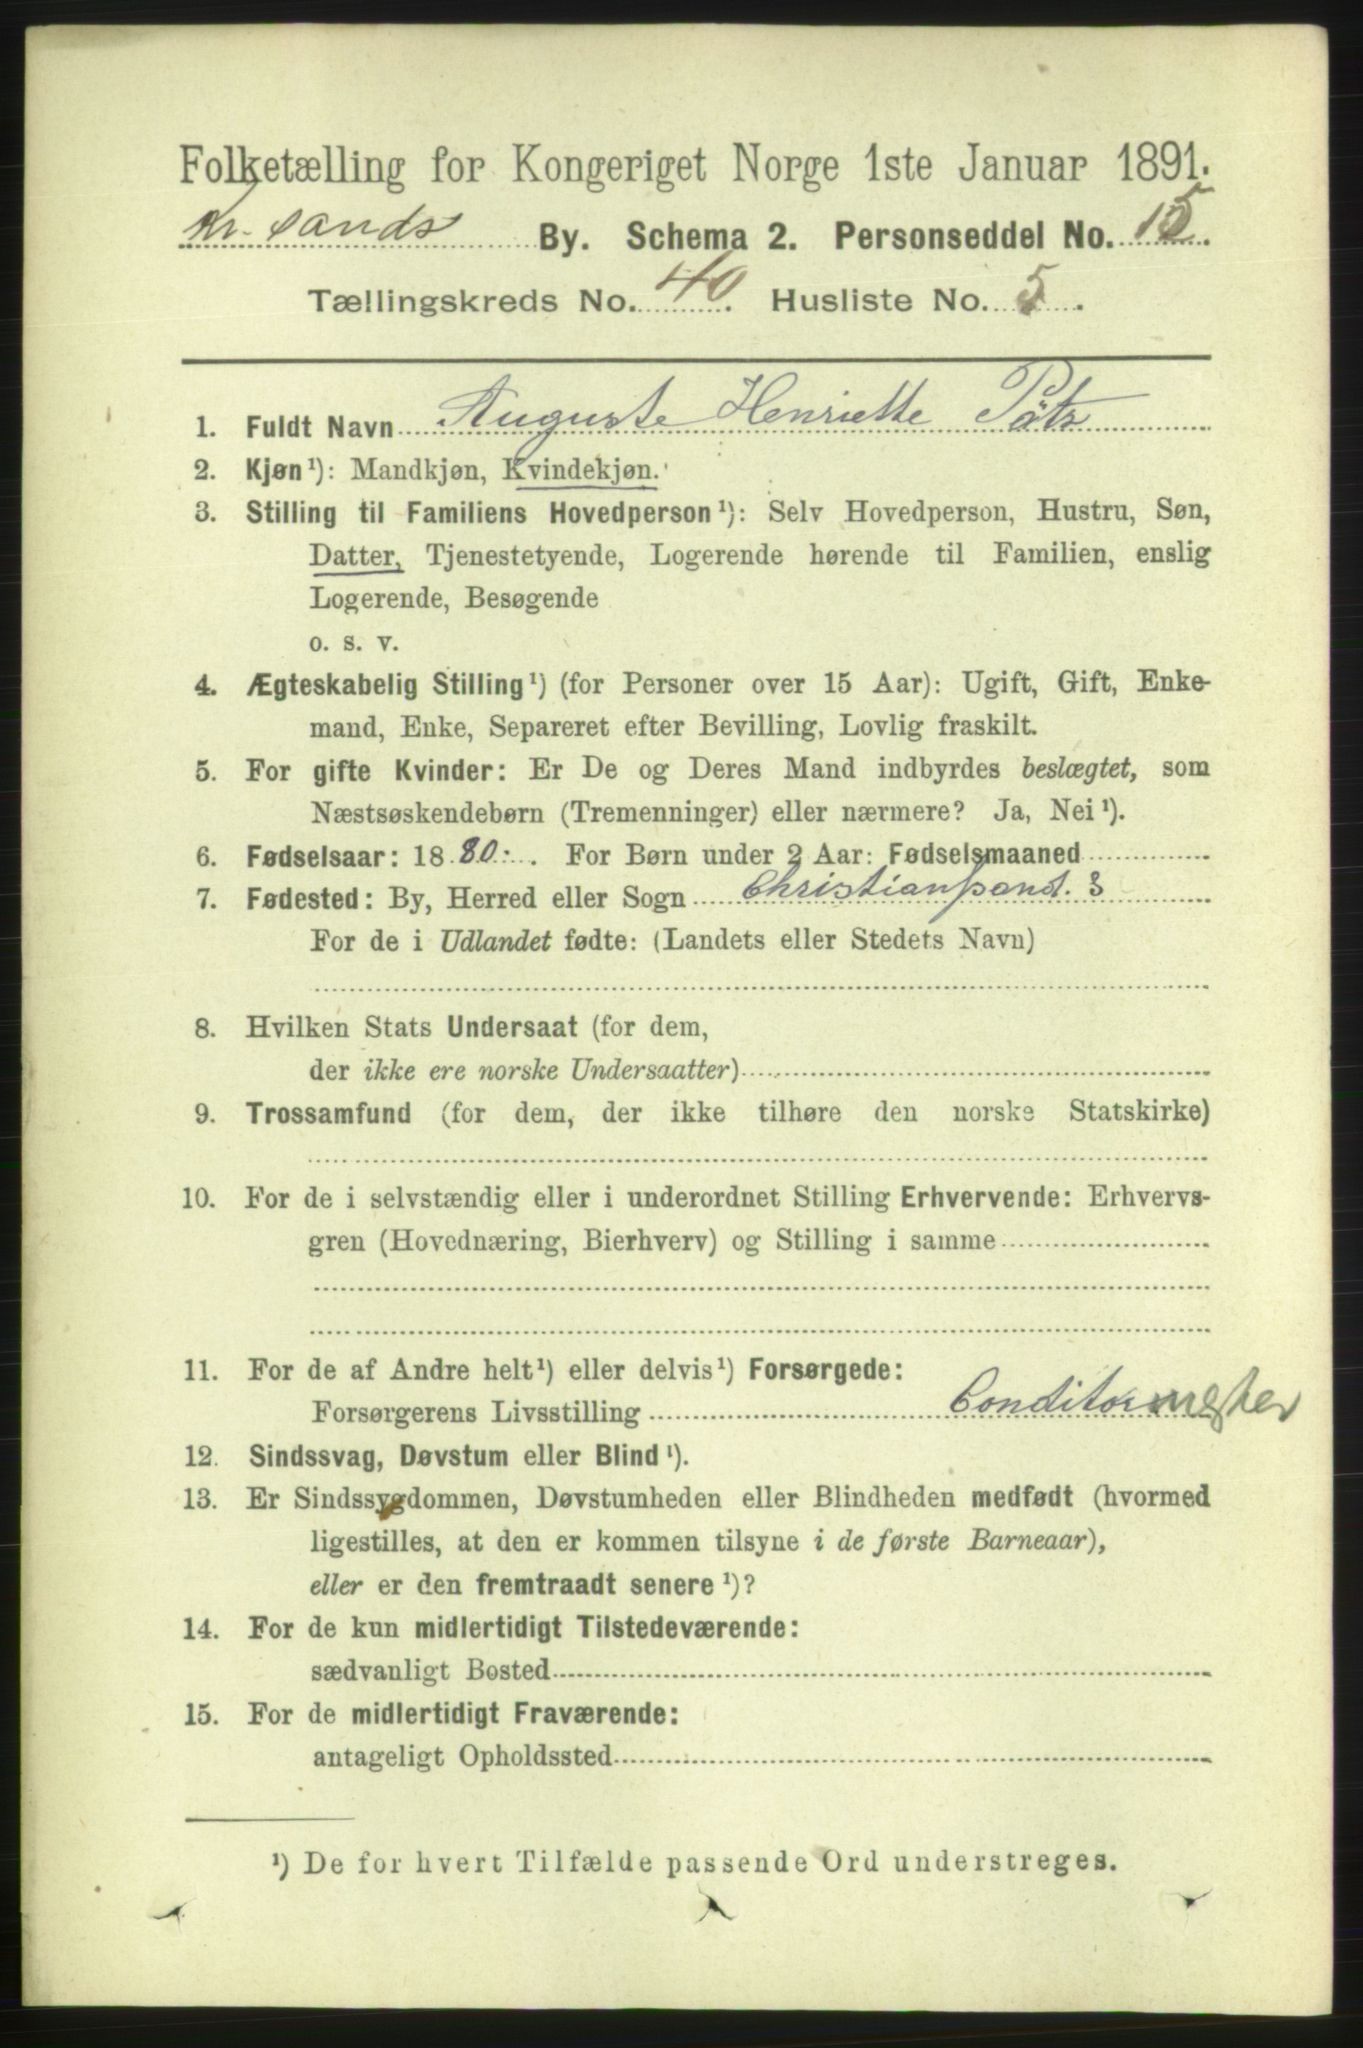 Folketælling for Kongeriget Norge 1ste Januar 1891.
Kr. sands By. Schema 2. Personseddel No. 15.
Tællingskreds No. 40. Husliste No. 5.
1. Fuldt Navn Auguste Henriette Pätz
2. Kjøn¹): Mandkjøn, Kvindekjøn.
3. Stilling til Familiens Hovedperson¹): Selv Hovedperson, Hustru, Søn,
Datter, Tjenestetyende, Logerende hørende til Familien, enslig
Logerende, Besøgende
o. s. v.
4. Ægteskabelig Stilling¹) (for Personer over 15 Aar): Ugift, Gift, Enke-
mand, Enke, Separeret efter Bevilling, Lovlig fraskilt.
5. For gifte Kvinder: Er De og Deres Mand indbyrdes beslægtet, som
Næstsøskendebørn (Tremenninger) eller nærmere? Ja, Nei¹).
6. Fødselsaar: 1880. For Børn under 2 Aar: Fødselsmaaned
7. Fødested: By, Herred eller Sogn Christianssand. 3
For de i Udlandet fødte: (Landets eller Stedets Navn)
8. Hvilken Stats Undersaat (for dem,
der ikke ere norske Undersaatter)
9. Trossamfund (for dem, der ikke tilhøre den norske Statskirke)
10. For de i selvstændig eller i underordnet Stilling Erhvervende: Erhvervs-
gren (Hovednæring, Bierhverv) og Stilling i samme
11. For de af Andre helt¹) eller delvis¹) Forsørgede:
Forsørgerens Livsstilling Conditormester
12. Sindssvag, Døvstum eller Blind¹).
13. Er Sindssygdommen, Døvstumheden eller Blindheden medfødt (hvormed
ligestilles, at den er kommen tilsyne i de første Barneaar),
eller er den fremtraadt senere¹)?
14. For de kun midlertidigt Tilstedeværende:
sædvanligt Bosted
15. For de midlertidigt Fraværende:
antageligt Opholdssted
¹) De for hvert Tilfælde passende Ord understreges.